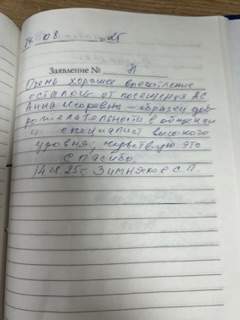 14 08 25
Заявление № 71
Очень хорошее впечатление
осталось от посещения АС
Анна Игоревна – образец доб
рожелательности в общении
и специалист высокого
уровня,
это
Спасибо.
14.08.25г Зимняков С.П.